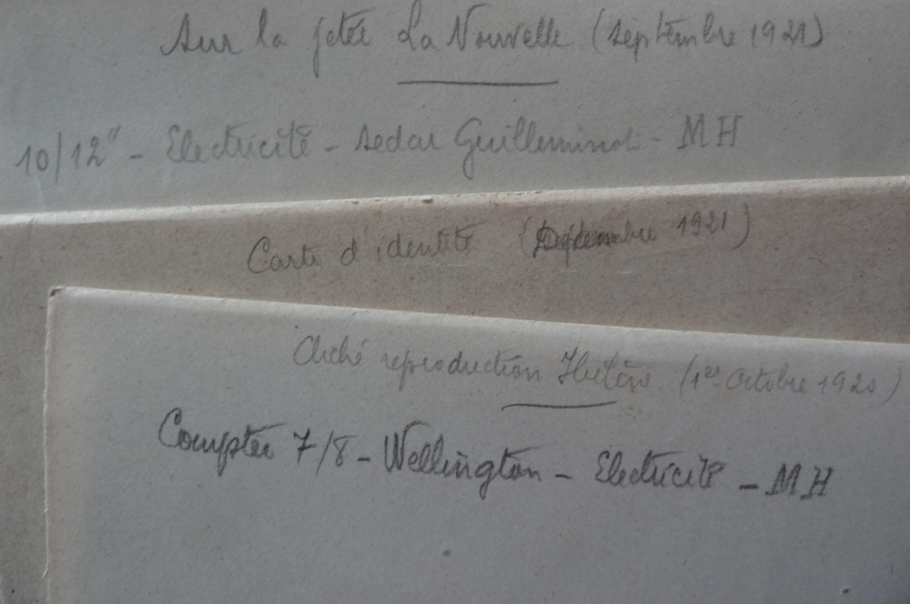 Sur la jetée La Nouvelle (septembre 1921)
10/12" - Electricité - sedar Guilleminot - MH
Carte d'identité (septembre 1921)
Cliché reproduction (1er Octobre 1920)
Compter 7/8 - Wellington - Electricité - MH